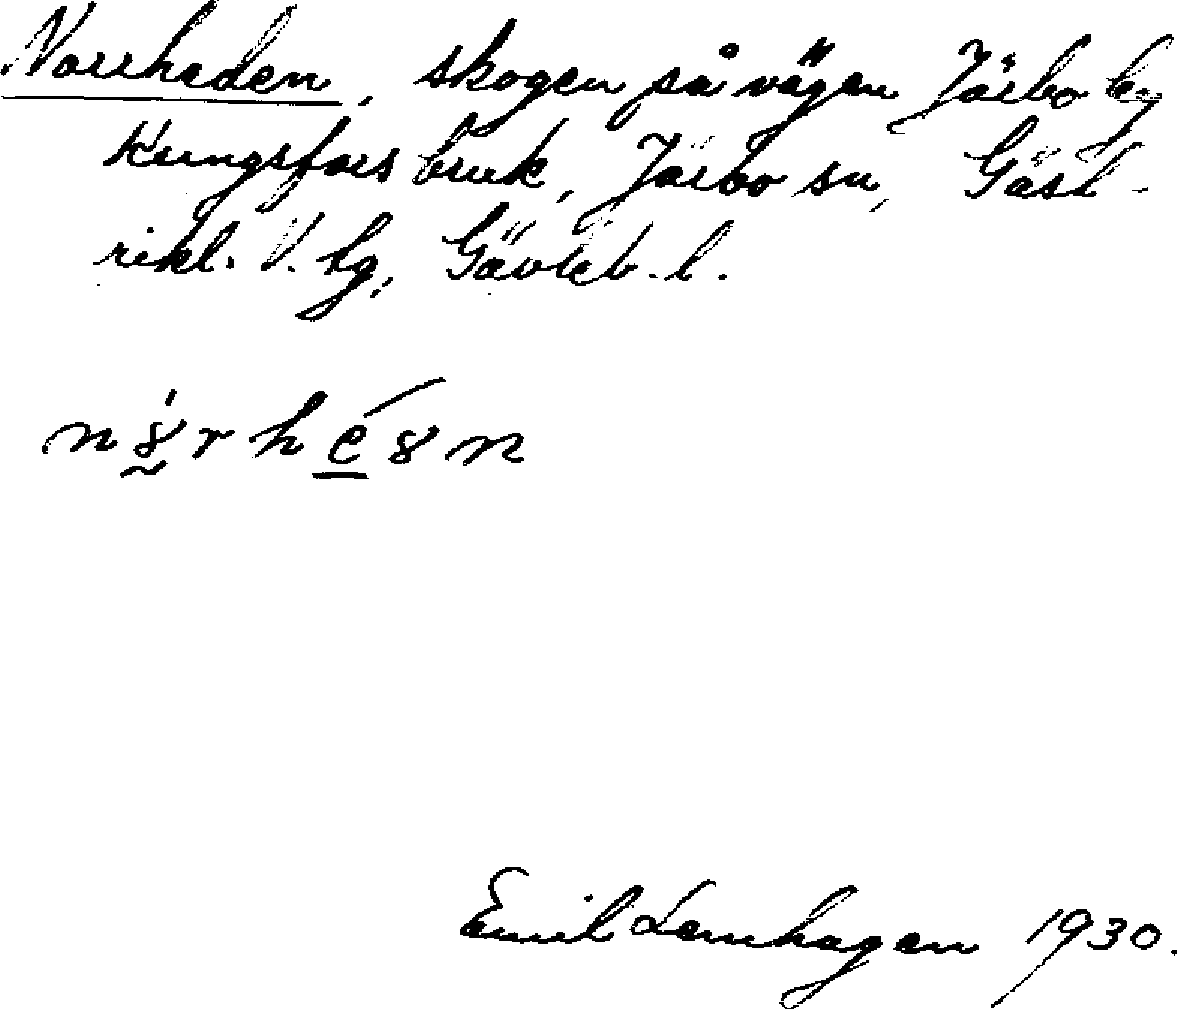 Norrheden, skogen på vägen Järbo by
Kungsfors bruk, Järbo sn, Gäst-
rikl. V. tg, Gävleb. l.
Emil Lernhagen 1930.